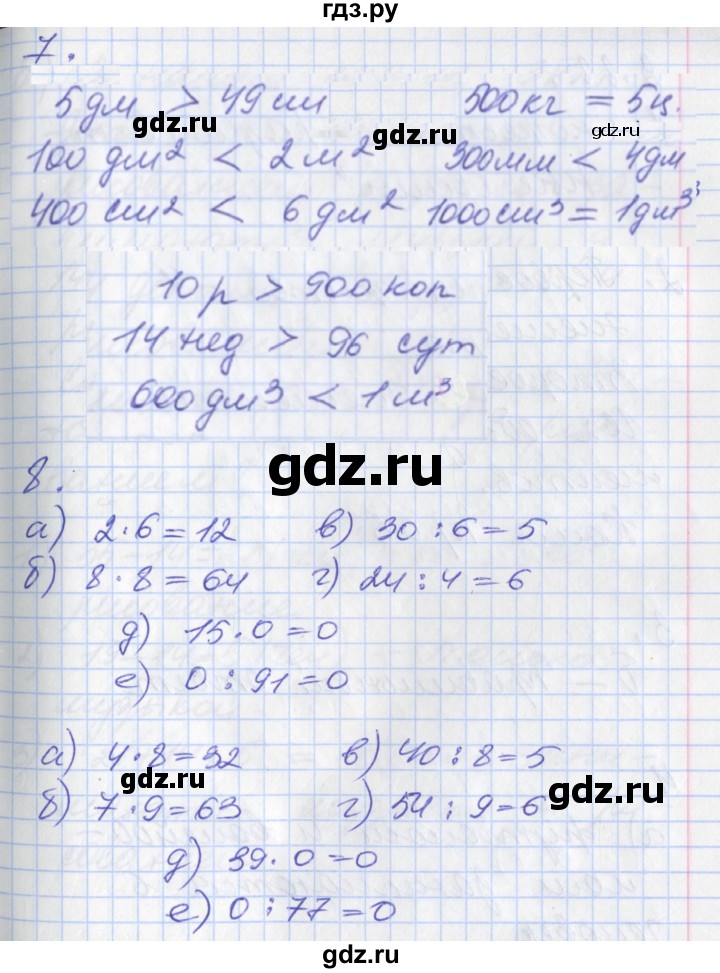 гдз.ру
7.
5 дм > 49 см 500 кг = 5 ц.
gdz.ru gdz.ru
100 дм² < 2 м² 300 мм < 4 дм
400 см² < 6 дм² 1000 см³ = 1 дм³;
10 р > 900 коп
14 нед > 96 сут
600 дм³ < 1 м³
gdz.ru
8.
а) 2 · 6 = 12 в) 30 : 6 = 5
б) 8 · 8 = 64 г) 24 : 4 = 6
д) 15 · 0 = 0
е) 0 : 91 = 0
а) 4 · 8 = 32 в) 40 : 8 = 5
gdz.ru gdz.ru
б) 7 · 9 = 63 г) 54 : 9 = 6
д) 39 · 0 = 0
е) 0 : 77 = 0
gdz.ru